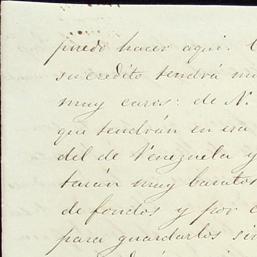 puedo hacer aqui.
su credito tendrá
muy caros: de N.
que tendrán en esa
del de Venezuela y
tarán muy baratos
de fondos y por
para guardarlos sin